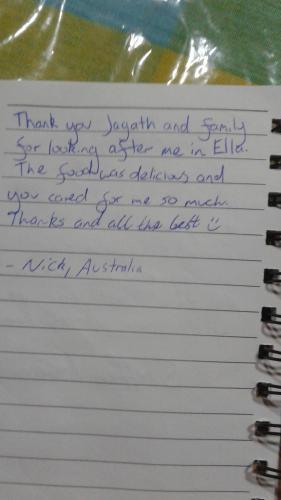 Thank you Jagath and family
for looking after me in Ella.
The food was delicious and
you cared for me so much.
Thanks and all the best ☺
- Nick, Australia